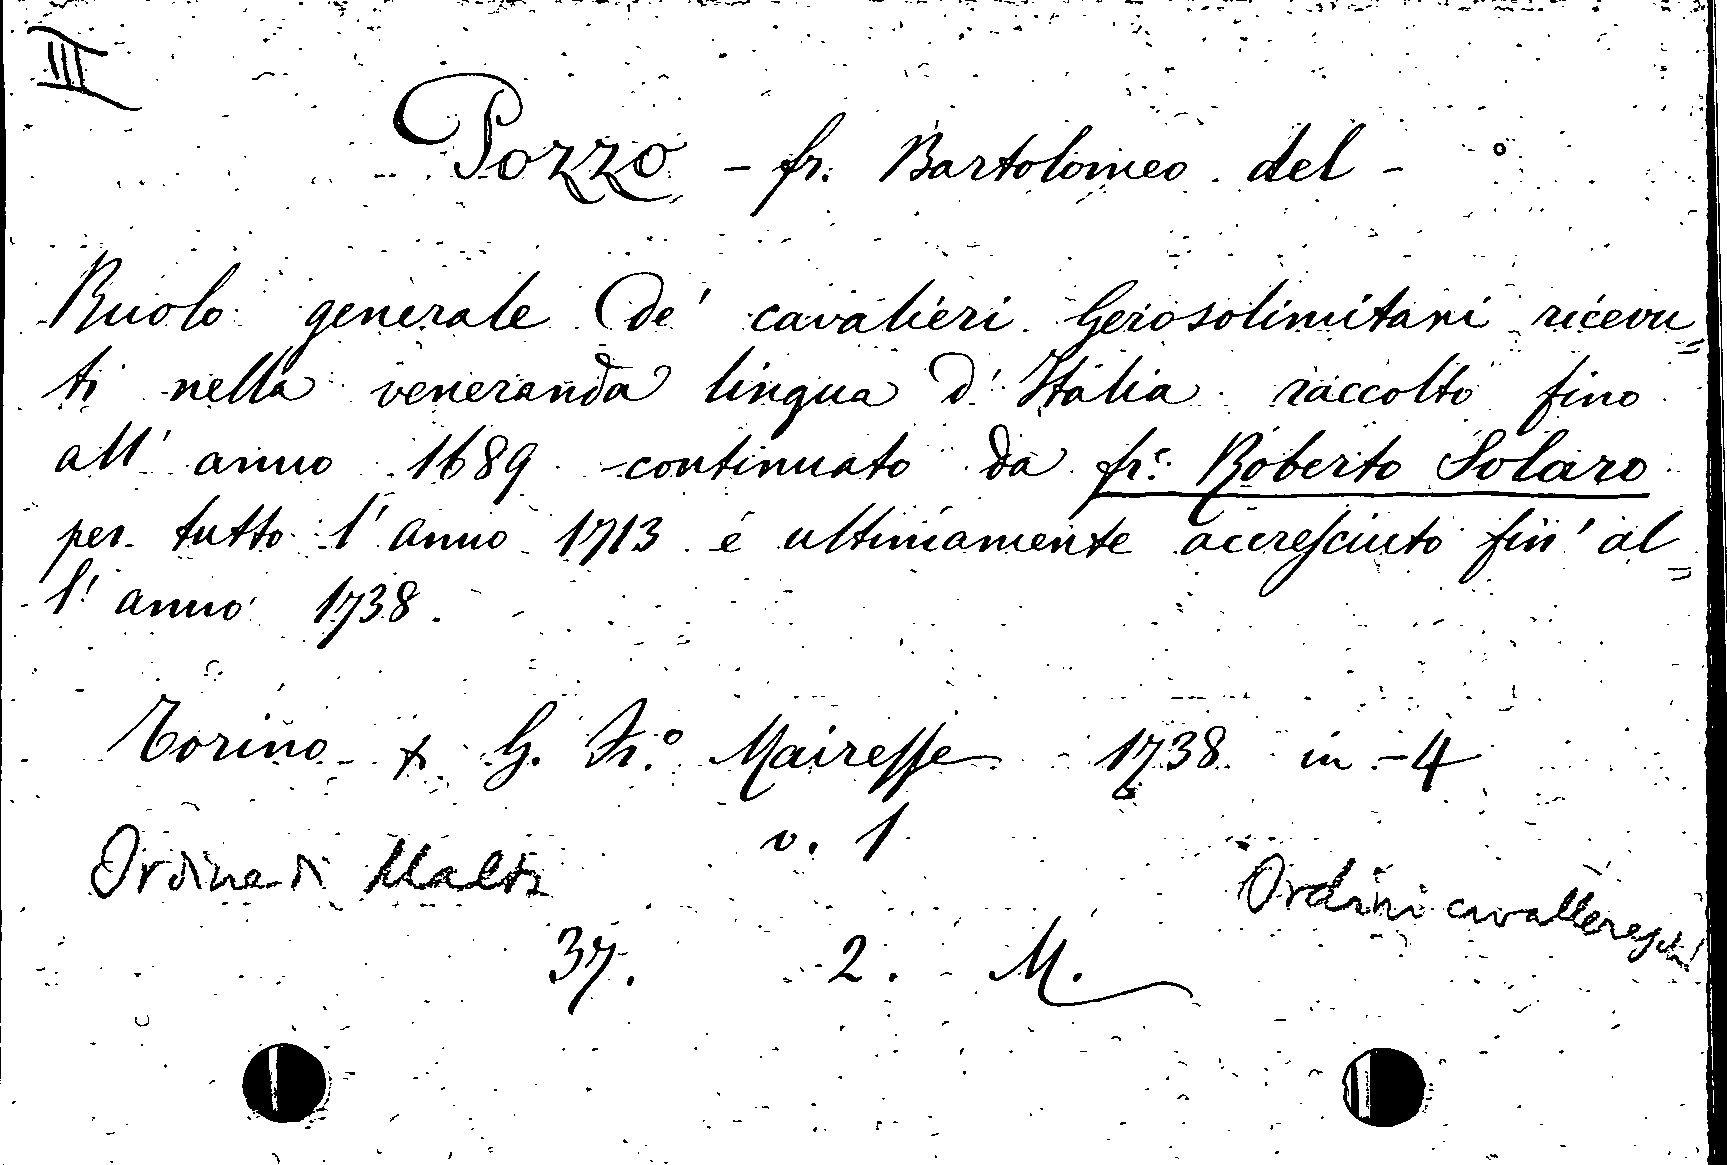 III
Pozzo - fr. Bartolomeo del -
Ruolo generale de' cavalieri Gerosolimitani ricevu=
ti nella veneranda lingua d'Italia raccolto fino
all' anno 1689 continuato da fr. Roberto Solaro
per tutto l'anno 1713 e ultimamente accresciuto fin' al=
l' anno 1738.
Torino G. Fr.º Mairesse 1738 in-4
v. 1
Ordine di Malta
Ordini cavallereschi
37. 2. M.